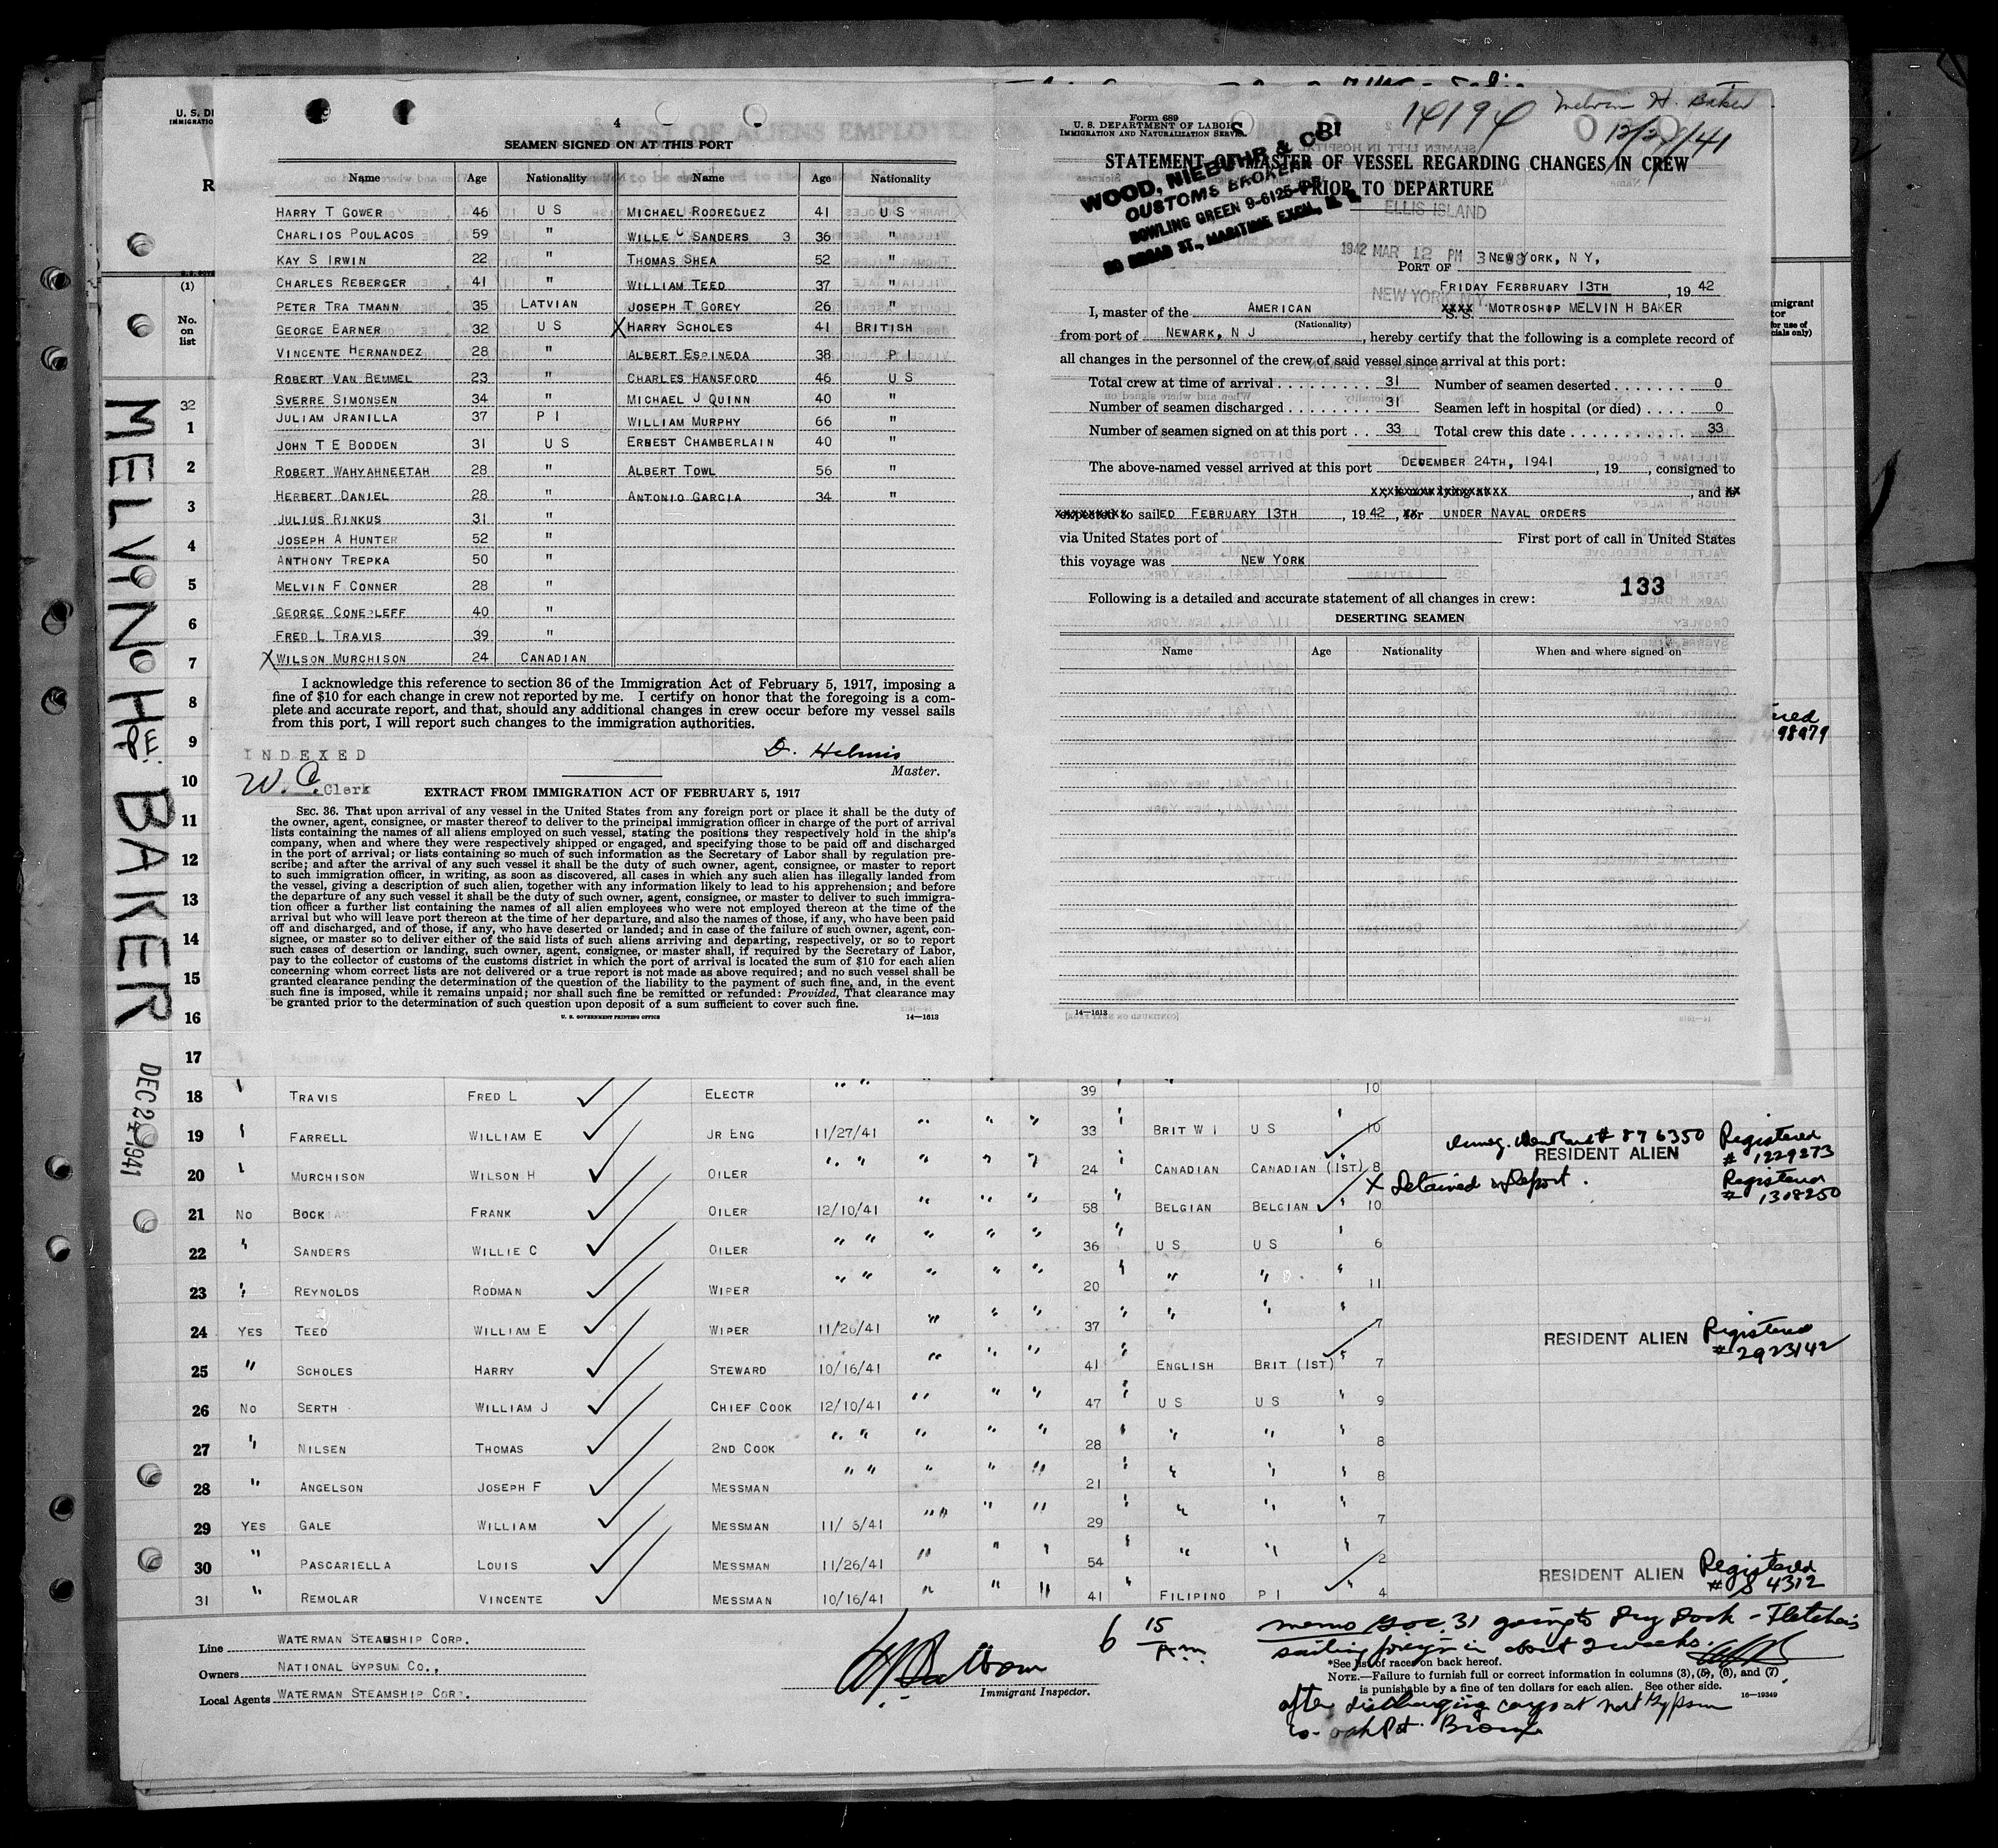 U. S. DE
IMMIGRATION
4
SEAMEN SIGNED ON AT THIS PORT
Name Age Nationality Name Age Nationality
HARRY T GOWER 46 U S MICHAEL RODREGUEZ 41 U S
CHARLIOS POULACOS 59 " WILLE C SANDERS 3 36 "
KAY S IRWIN 22 " THOMAS SHEA 52 "
CHARLES REBERGER 41 " WILLIAM TEED 37 "
PETER TRA TMANN 35 LATVIAN JOSEPH T GOREY 26 "
GEORGE BARNER 32 U S X HARRY SCHOLES 41 BRITISH
VINCENTE HERNANDEZ 28 " ALBERT ESPINEDA 38 P I
ROBERT VAN BEMMEL 23 " CHARLES HANSFORD 46 U S
SVERRE SIMONSEN 34 " MICHAEL J QUINN 40 "
JULIAM JRANILLA 37 P I WILLIAM MURPHY 66 "
JOHN T E BODDEN 31 U S ERNEST CHAMBERLAIN 40 "
ROBERT WAHYAHNEETAH 28 " ALBERT TOWL 56 "
HERBERT DANIEL 28 " ANTONIO GARCIA 34 "
JULIUS RINKUS 31 "
JOSEPH A HUNTER 52 "
ANTHONY TREPKA 50 "
MELVIN F CONNER 28 "
GEORGE CONE LEFF 40 "
FRED L TRAVIS 39 "
X WILSON MURCHISON 24 CANADIAN
I acknowledge this reference to section 36 of the Immigration Act of February 5, 1917, imposing a
fine of $10 for each change in crew not reported by me. I certify on honor that the foregoing is a com-
plete and accurate report, and that, should any additional changes in crew occur before my vessel sails
from this port, I will report such changes to the immigration authorities.
INDEXED
D. Helmis
Master.
W. C. Clerk
EXTRACT FROM IMMIGRATION ACT OF FEBRUARY 5, 1917
SEC. 36. That upon arrival of any vessel in the United States from any foreign port or place it shall be the duty of
the owner, agent, consignee, or master thereof to deliver to the principal immigration officer in charge of the port of arrival
lists containing the names of all aliens employed on such vessel, stating the positions they respectively hold in the ship's
company, when and where they were respectively shipped or engaged, and specifying those to be paid off and discharged
in the port of arrival; or lists containing so much of such information as the Secretary of Labor shall by regulation pre-
scribe; and after the arrival of any such vessel it shall be the duty of such owner, agent, consignee, or master to report
to such immigration officer, in writing, as soon as discovered, all cases in which any such alien has illegally landed from
the vessel, giving a description of such alien, together with any information likely to lead to his apprehension; and before
the departure of any such vessel it shall be the duty of such owner, agent, consignee, or master to deliver to such immigra-
tion officer a further list containing the names of all alien employees who were not employed thereon at the time of the
arrival but who will leave port thereon at the time of her departure, and also the names of those, if any, who have been paid
off and discharged, and of those, if any, who have deserted or landed; and in case of the failure of such owner, agent, con-
signee, or master so to deliver either of the said lists of such aliens arriving and departing, respectively, or so to report
such cases of desertion or landing, such owner, agent, consignee, or master shall, if required by the Secretary of Labor,
pay to the collector of customs of the customs district in which the port of arrival is located the sum of $10 for each alien
concerning whom correct lists are not delivered or a true report is not made as above required; and no such vessel shall be
granted clearance pending the determination of the question of the liability to the payment of such fine, and, in the event
such fine is imposed, while it remains unpaid; nor shall such fine be remitted or refunded: Provided, That clearance may
be granted prior to the determination of such question upon deposit of a sum sufficient to cover such fine.
U. S. GOVERNMENT PRINTING OFFICE 14—1613
14194 Melvin H. Baker
12/24/41
Form 689
U. S. DEPARTMENT OF LABOR
IMMIGRATION AND NATURALIZATION SERVICE
STATEMENT OF MASTER OF VESSEL REGARDING CHANGES IN CREW
PRIOR TO DEPARTURE
WOOD, NIEBUHR & CO
CUSTOMS BROKERS
BOWLING GREEN 9-6125-
BROAD ST., MARITIME EXCH, N. Y.
ELLIS ISLAND
1942 MAR 12 PM 3
NEW YORK, N.Y.
PORT OF NEW YORK, N Y,
FRIDAY FERBRUARY 13TH, 19 42
I, master of the AMERICAN (Nationality) S.S. XXXX MOTROSHIP MELVIN H BAKER
from port of NEWARK, N J, hereby certify that the following is a complete record of
all changes in the personnel of the crew of said vessel since arrival at this port:
Total crew at time of arrival 31 Number of seamen deserted 0
Number of seamen discharged 31 Seamen left in hospital (or died) 0
Number of seamen signed on at this port 33 Total crew this date 33
The above-named vessel arrived at this port DECEMBER 24TH, 1941, 19 , consigned to
, and is
expected to sailED FEBRUARY 13TH, 19 42, for UNDER NAVAL ORDERS
via United States port of First port of call in United States
this voyage was NEW YORK
133
Following is a detailed and accurate statement of all changes in crew:
DESERTING SEAMEN
Name Age Nationality When and where signed on
14—1613
R
(1)
No. on list
migrant
tor
for use of
cials only)
98979
MELVIN H. BAKER
DEC 24 1941
32
1
2
3
4
5
6
7
8
9
10
11
12
13
14
15
16
17
18 " TRAVIS FRED L ELECTR " " 39 " 10
19 " FARRELL WILLIAM E JR ENG 11/27/41 " " " 33 " BRIT W I U S " 10 RESIDENT ALIEN Registered # 1229273
20 " MURCHISON WILSON H OILER " " " " " 24 " CANADIAN CANADIAN (1ST) 8 X Detained & Report. Registered # 1308250
21 NO BOCK FRANK OILER 12/10/41 " " " 58 " BELGIAN BELGIAN " 10
22 " SANDERS WILLIE C OILER " " " " " 36 " U S U S " 6
23 " REYNOLDS RODMAN WIPER " " " " " 20 " " " " 11
24 YES TEED WILLIAM E WIPER 11/26/41 " " " 37 " " " " 7
25 " SCHOLES HARRY STEWARD 10/16/41 " " " 41 " ENGLISH BRIT (1ST) " 7 RESIDENT ALIEN Registered # 2923142
26 NO SERTH WILLIAM J CHIEF COOK 12/10/41 " " " 47 " U S U S " 9
27 " NILSEN THOMAS 2ND COOK " " " " " 28 " " " " 8
28 " ANGELSON JOSEPH F MESSMAN " " " " " 21 " " " " 8
29 YES GALE WILLIAM MESSMAN 11/ 6/41 " " " 29 " " " " 7
30 " PASCARIELLA LOUIS MESSMAN 11/26/41 " " " 54 " " " " 2
31 " REMOLAR VINCENTE MESSMAN 10/16/41 " " " 41 " FILIPINO P I " 4 RESIDENT ALIEN Registered
Line WATERMAN STEAMSHIP CORP.
Owners NATIONAL GYPSUM CO.,
Local Agents WATERMAN STEAMSHIP CORP.
6 15 A.m
Immigrant Inspector.
memo Dec. 31 going to Dry Dock - Fletchers
sailing foreign in about 2 weeks.
*See list of races on back hereof.
NOTE.—Failure to furnish full or correct information in columns (3), (5), (6), and (7)
is punishable by a fine of ten dollars for each alien. See other side. 16—19349
after discharging cargo at Nat Gypsum
Co- oak Pt. Bronx